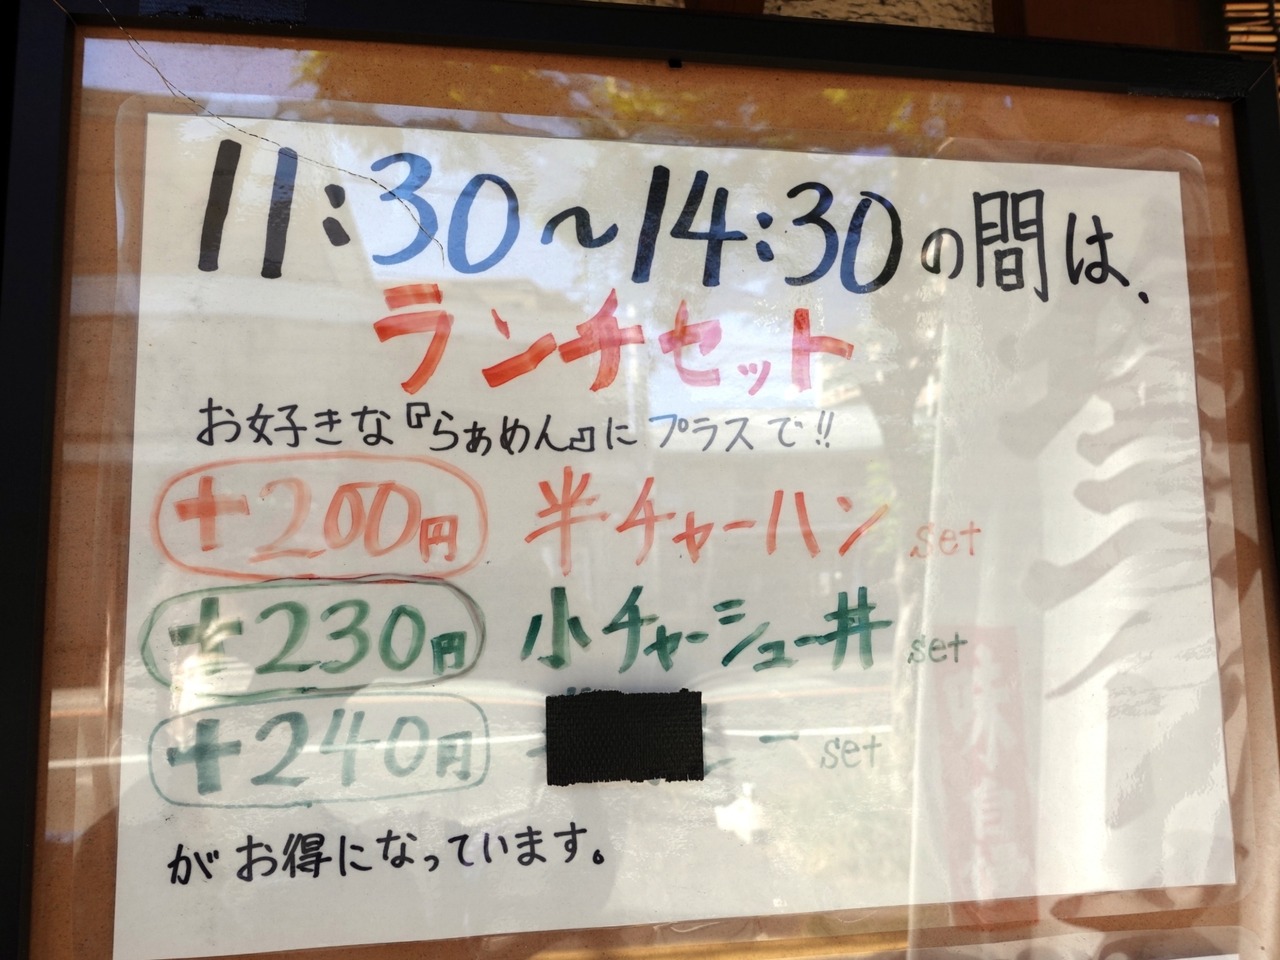 11:30〜14:30の間は、
ランチセット
お好きな『らぁめん』にプラスで!!
+200円 半チャーハン set
+230円 小チャーシュー丼 set
+240円 set
がお得になっています。